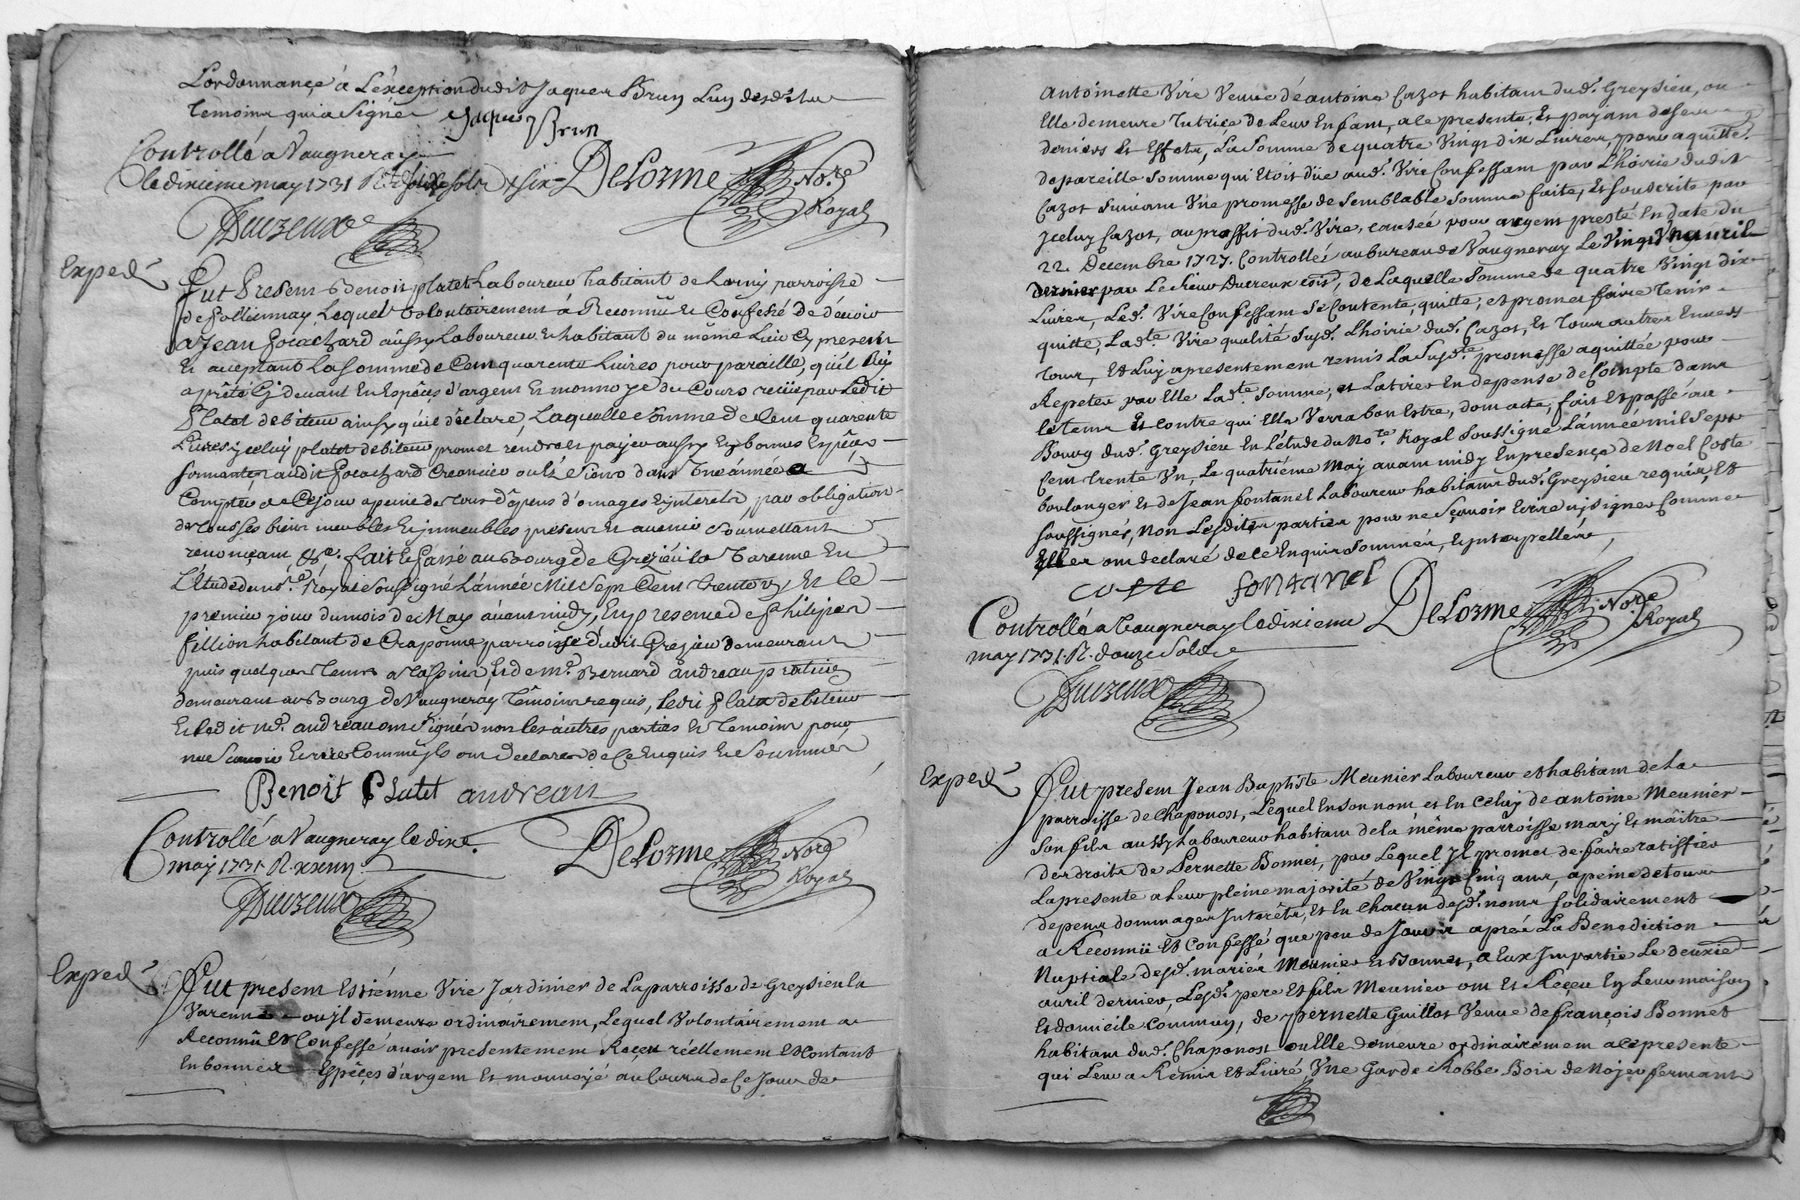 L'ordonnance à L'éxception dudit Jaques Brun L'un desdits
Temoins qui a Signé Jaque Brun
Controllé a Vaugneray
le dixieme may 1731 Delorme No.re
Royal
Duizeux
Exped.
Fut Present Benoit platet Laboureur habitant de parroisse
de Pollionnay, Lequel Volontairement à Reconnû et Confessé de devoir
a Jean aussy Laboureur et habitant du même Lieu Cy present
Et acceptant La somme de Cent quarente Livres pour paraille, qu'il luy
a prêté Cy devant En Espêces d'argent Et monnoye du Cours reçüe par Ledit
Platet debiteur ainsy qu'il déclare, Laquelle somme de Cent quarente
Livres yceluy platet debiteur promet rendre et payer aussy En bonnes Espêces
sonnantes audit Creancier ou Lé Siens dans Une année a
Compter de Ce jour a peine de tous dêpens d'omages Et interets, par obligation
de tous ses biens meubles Et immeubles presens Et avenir soumettant
renonçant, &c. fait Et passé au Bourg de Grezieu la Varenne En
L'Etude du no.re Royal Soussigné L'année Mil Sept Cent trente un Et le
premier jour du mois de May avant midy, En presence de Philipes
fillion habitant de Craponne parroisse dudit Grezieu demeurant
puis quelques tems a Et de m.e Bernard andreau praticien
demeurant au Bourg de Vaugneray Témoins requis, ledit platet debiteur
Et Ledit M.e andreau ont Signé non les autres parties Et Temoins pour
ne Scavoir Ecrire Comme ils ont Declaré de Ce Enquis Et Sommés
Benoit Platet andreau
Controllé a Vaugneray le dixe.
may 1731 R. Delorme Nore
Royal
Duizeux
Exped.
Fut present Estiénne Vire Jardinier de La parroisse de Greysieu la
Varenne ou Jl demeure ordinairement, Lequel Volontairement a
Reconnû Et Confessé avoir presentement Reçeu réellement Et Contant
En bonnes Espêçes d'argent Et monnoyé au Cours de Ce Jour de
Antoinette Vire Veuve de antoine Cazot habitant dud. Greysieu, ou
Elle demeure Tutrice de Leur Enfant, a le presente, Et payant de Ses
deniers Et Effets, La Somme de quatre Vingt dix Livres, pour aquitté
de pareille Somme qui Etoit düe aud. Vire Confessant par L'hoirie dudit
Cazot Suivant Une promesse de Semblable Somme faite, Et Souscrite par
Jceluy Cazot, au proffit dud. Vire, causée pour argent presté En date du
22. Decembre 1727. Controllé au bureau de Vaugneray Le Vingt Un auril
Dernier par Le Sieur Ducreux de Laquelle Somme de quatre Vingt dix
Livres, Led. Vire Confessant Se Contente, quitte, et promet faire tenir
quitte, Lad.te Vire qualité Susd. L'hoirie dud. Cazot, Et tous autres Envers
tous, Et Luy a presentement remis La Susd.te promesse aquittée pour
Repeter par Elle Lad.te Somme, et La tirer En depense de Compte dans
le tems Et Contre qui Elle Verra bon Estre, dont acte, fait Et passé au
Bourg dud. Greysieu En L'etude du No.re Royal Soussigné L'année mil Sept
Cent trente Un, Le quatriéme May avant midy En presence de Noel Coste
boulanger Et de Jean fontanel Laboureur habitans dud. Greysieu requis, Et
Soussignés, Non Lesdites parties pour ne Sçavoir Ecrire nj Signer Comme
Elles ont declaré de Ce Enquis Sommées, Et interpellées,
coste fontanel
Controllé a Vaugneray le dixieme
may 1731. R. douze Sols Delorme No.re
Royal
Duizeux
Exped.
Fut present Jean Baptiste Meunier Laboureur et habitant de La
parroisse de Chaponost, Lequel En Son nom et En Celuy de antoine Meunier
Son fils aussy Laboureur habitant de la même parroisse mary Et maître
des droits de Pernette Bonnet, par Lequel Jl promet de faire ratiffier
La presente a Leur pleine majorité de Vingt Cinq ans, a peine de tous
depens dommages Interêts, Et En Chacun desd. noms Solidairement
a Reconnü Et Confessé que peu de Jours aprés La Benediction
Nuptiale desd. mariés Meunier Et Bonnet, a Eux Jmpartie Le deuxie.
auril dernier, Lesd. pere Et fils Meunier ont Et Reçeu En Leur maison
Et domicile Commun, de pernette Guillot Veuve de françois Bonnet
habitant dud. Chaponost ou Elle demeure ordinairement a le presente
qui Leur a Remis Et Livré Une Garde Robbe Bois de Nojer fermant